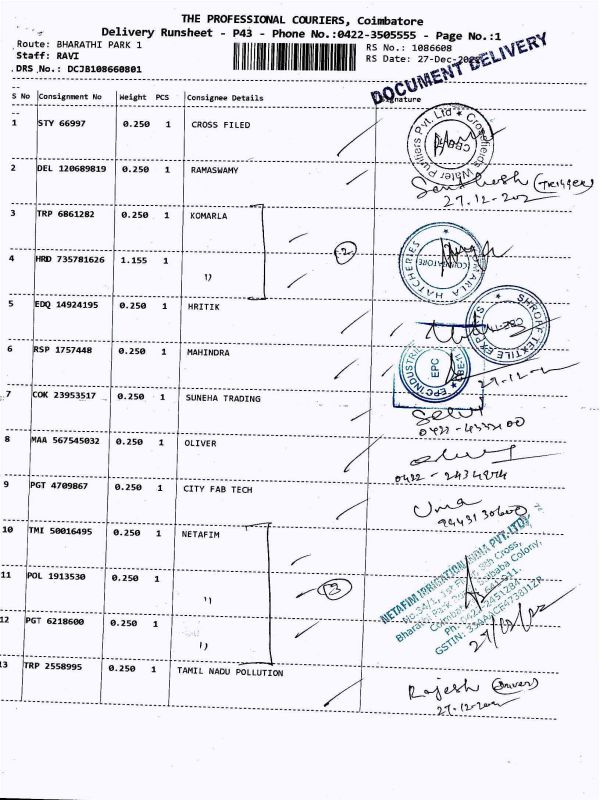 THE PROFESSIONAL COURIERS, Coimbatore
Delivery Runsheet - P43 - Phone No.:0422-3505555 - Page No.:1
Route: BHARATHI PARK 1 RS No.: 1086608
Staff: RAVI RS Date: 27-Dec-202
DRS No.: DCJB108660801
DOCUMENT DELIVERY
S No Consignment No Weight PCS Consignee Details Signature
1 STY 66997 0.250 1 CROSS FILED
Crossfields Water Purifiers Pvt. Ltd ★ CBE-
2 DEL 120689819 0.250 1 RAMASWAMY
Santhosh (
27.12-202
3 TRP 6861282 0.250 1 KOMARLA
2
4 HRD 735781626 1.155 1 ")
KOMARLA HATCHERIES ★ COIMBATORE
5 EDQ 14924195 0.250 1 HRITIK
SHROFF TEXTILE EXPORTS ★ CBE-11
6 RSP 1757448 0.250 1 MAHINDRA
EPC INDUSTRI EPC CBE-11
27-12-2
7 COK 23953517 0.250 1 SUNEHA TRADING
Selvi
0422-4333100
8 MAA 567545032 0.250 1 OLIVER
0422-2434874
9 PGT 4709867 0.250 1 CITY FAB TECH
Uma
10 TMI 50016495 0.250 1 NETAFIM
NETAFIM IRRIGATION INDIA PVT. LTD
No:54/1, 1st Floor, 5th Cross,
Bharathi Park Colony,
Coimbatore - 641 011.
Ph:
GSTIN:
11 POL 1913530 0.250 1 ")
3
12 PGT 6218600 0.250 1 ")
13 TRP 2558995 0.250 1 TAMIL NADU POLLUTION
Rajesh (Driver)
27-12-202